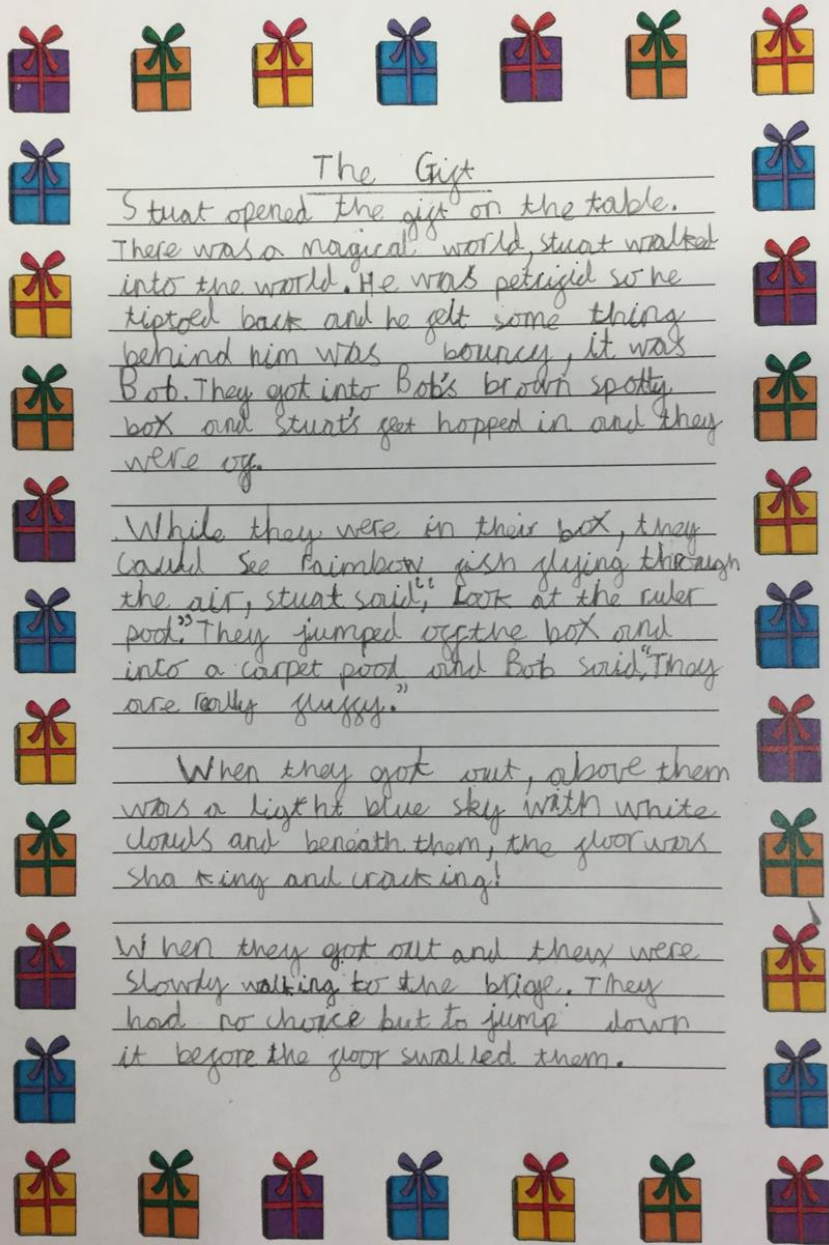 The Gift
Stuat opened the gift on the table.
There was a magical world, stuat walked
into the world. He was petrifid so he
tiptoed back and he felt some thing
behind him was bouncy, it was
Bob. They got into Bob's brown spotty
box and Stuat's feet hopped in and they
were off.
While they were in their box, they
could see raimbow fish flying through
the air, stuat said, "Look at the ruler
pool." They jumped off the box and
into a carpet pool and Bob said, "They
are really fluffy."
When they got out, above them
was a light blue sky with white
clouds and beneath them, the floor was
shaking and cracking!
When they got out and they were
slowly walking to the brige. They
had no choice but to jump down
it before the floor swalled them.